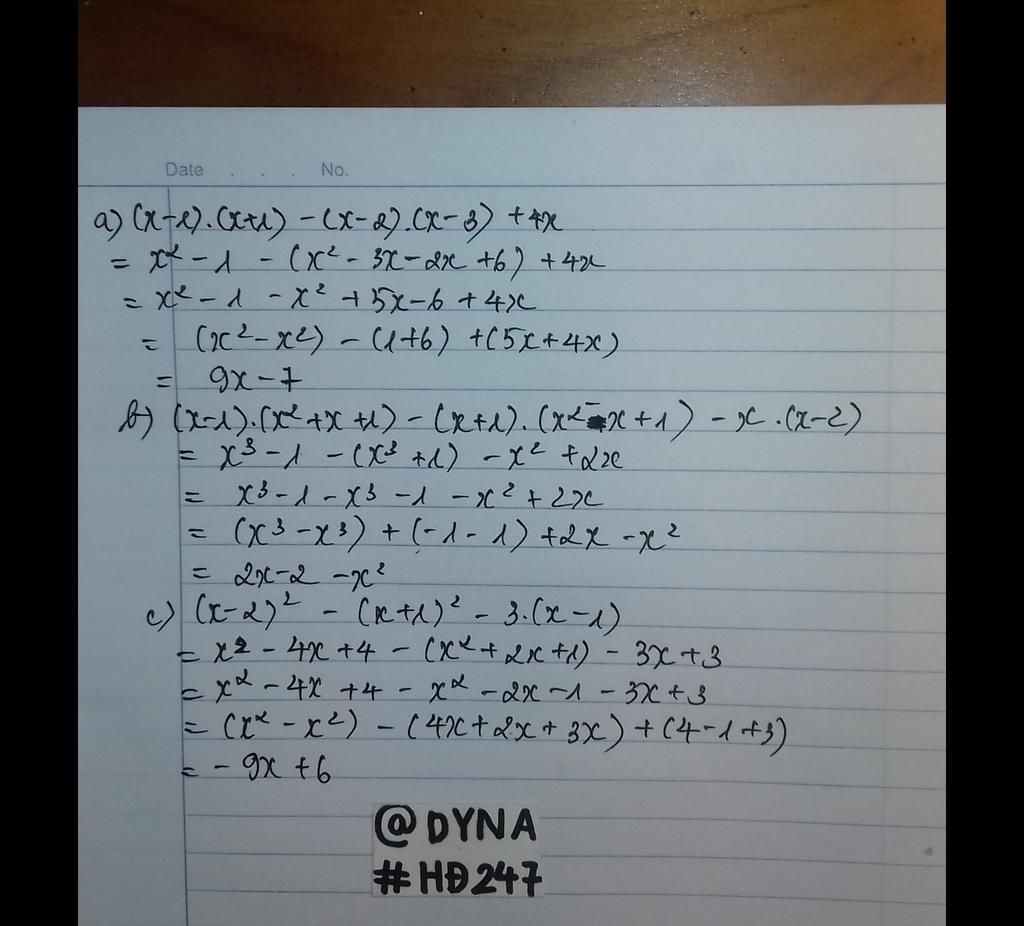 Date . . . No.
a) (x-1).(x+1) - (x-2).(x-3) + 4x
= x² - 1 - (x² - 3x - 2x + 6) + 4x
= x² - 1 - x² + 5x - 6 + 4x
= (x² - x²) - (1+6) + (5x + 4x)
= 9x - 7
b) (x-1).(x² + x + 1) - (x+1).(x² - x + 1) - x.(x-2)
= x³ - 1 - (x³ + 1) - x² + 2x
= x³ - 1 - x³ - 1 - x² + 2x
= (x³ - x³) + (-1 - 1) + 2x - x²
= 2x - 2 - x²
c) (x-2)² - (x+1)² - 3.(x-1)
= x² - 4x + 4 - (x² + 2x + 1) - 3x + 3
= x² - 4x + 4 - x² - 2x - 1 - 3x + 3
= (x² - x²) - (4x + 2x + 3x) + (4 - 1 + 3)
= - 9x + 6
@DYNA
#HĐ247